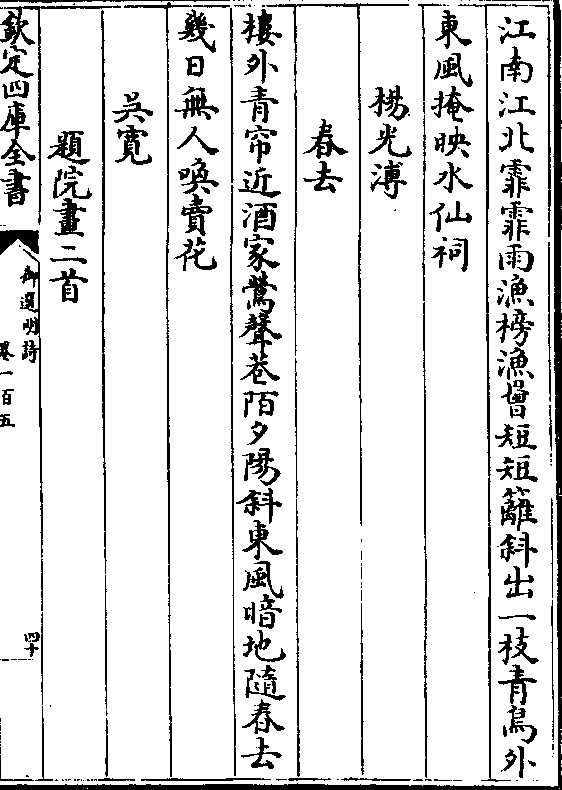 江南江北霏霏雨漁榜漁罾短短籬斜出一枝青鳥外
東風掩映水仙祠
楊光溥
春去
樓外青帘近酒家鶯聲巷陌夕陽斜東風暗地隨春去
幾日無人喚賣花
吳寬
題院畫二首
欽定四庫全書
御選明詩
卷一百五
四十